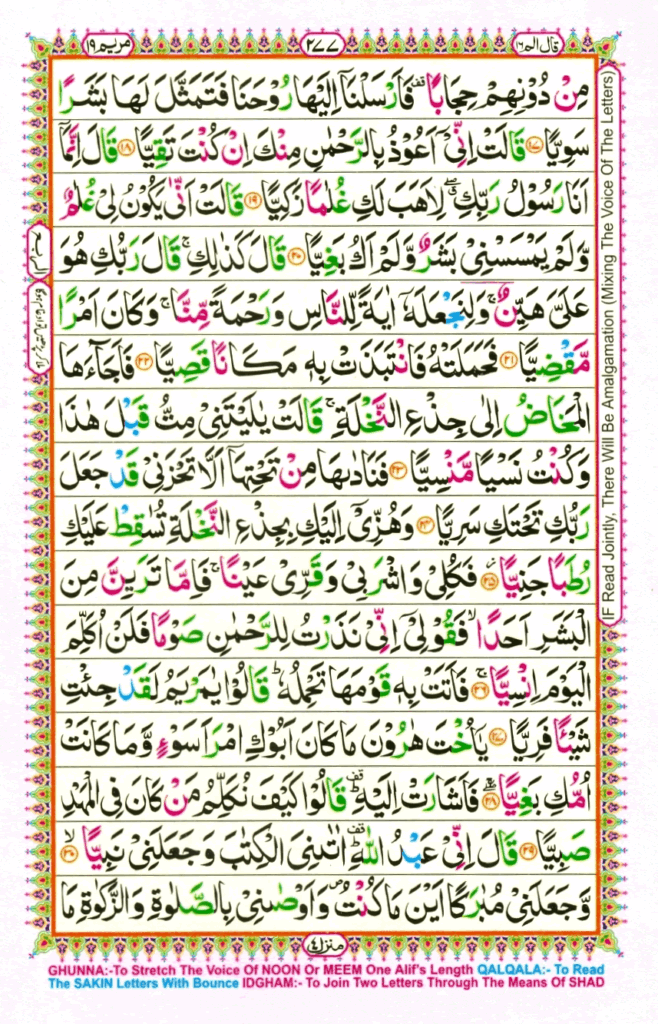 قال الم ١٦
٢٧٧
مريم ١٩
مِنْ دُوْنِهِمْ حِجَابًا ۪۫ فَاَرْسَلْنَاۤ اِلَيْهَا رُوْحَنَا فَتَمَثَّلَ لَهَا بَشَرًا
سَوِيًّا ﴿۱۷﴾ قَالَتْ اِنِّیْۤ اَعُوْذُ بِالرَّحْمٰنِ مِنْكَ اِنْ كُنْتَ تَقِيًّا ﴿۱۸﴾ قَالَ اِنَّمَاۤ
اَنَا رَسُوْلُ رَبِّكِ ۖۗ لِاَهَبَ لَكِ غُلٰمًا زَكِيًّا ﴿۱۹﴾ قَالَتْ اَنّٰى يَكُوْنُ لِیْ غُلٰمٌ
وَّلَمْ يَمْسَسْنِیْ بَشَرٌ وَّلَمْ اَكُ بَغِيًّا ﴿۲۰﴾ قَالَ كَذٰلِكِ ۚ قَالَ رَبُّكِ هُوَ
عَلَیَّ هَيِّنٌ ۚ وَلِنَجْعَلَهٗۤ اٰيَةً لِّلنَّاسِ وَرَحْمَةً مِّنَّا ۚ وَكَانَ اَمْرًا
مَّقْضِيًّا ﴿۲۱﴾ فَحَمَلَتْهُ فَانْتَبَذَتْ بِهٖ مَكَانًا قَصِيًّا ﴿۲۲﴾ فَاَجَآءَهَا
الْمَخَاضُ اِلٰى جِذْعِ النَّخْلَةِ ۚ قَالَتْ يٰلَيْتَنِیْ مِتُّ قَبْلَ هٰذَا
وَكُنْتُ نَسْيًا مَّنْسِيًّا ﴿۲۳﴾ فَنَادٰىهَا مِنْ تَحْتِهَاۤ اَلَّا تَحْزَنِیْ قَدْ جَعَلَ
رَبُّكِ تَحْتَكِ سَرِيًّا ﴿۲۴﴾ وَهُزِّیْۤ اِلَيْكِ بِجِذْعِ النَّخْلَةِ تُسٰقِطْ عَلَيْكِ
رُطَبًا جَنِيًّا ﴿۲۵﴾ فَكُلِیْ وَاشْرَبِیْ وَقَرِّیْ عَيْنًا ۚ فَاِمَّا تَرَيِنَّ مِنَ
الْبَشَرِ اَحَدًا ۙ فَقُوْلِیْۤ اِنِّیْ نَذَرْتُ لِلرَّحْمٰنِ صَوْمًا فَلَنْ اُكَلِّمَ
الْيَوْمَ اِنْسِيًّا ﴿۲۶﴾ ۚ فَاَتَتْ بِهٖ قَوْمَهَا تَحْمِلُهٗ ؕ قَالُوْا يٰمَرْيَمُ لَقَدْ جِئْتِ
شَيْـًٔا فَرِيًّا ﴿۲۷﴾ يٰۤاُخْتَ هٰرُوْنَ مَا كَانَ اَبُوْكِ امْرَاَ سَوْءٍ وَّمَا كَانَتْ
اُمُّكِ بَغِيًّا ﴿۲۸﴾ ۖۚ فَاَشَارَتْ اِلَيْهِ ؕ قَالُوْا كَيْفَ نُكَلِّمُ مَنْ كَانَ فِی الْمَهْدِ
صَبِيًّا ﴿۲۹﴾ قَالَ اِنِّیْ عَبْدُ اللّٰهِ ؕ۫ اٰتٰىنِیَ الْكِتٰبَ وَجَعَلَنِیْ نَبِيًّا ﴿۳۰﴾ ۙ
وَّجَعَلَنِیْ مُبٰرَكًا اَيْنَ مَا كُنْتُ ۪ وَاَوْصٰىنِیْ بِالصَّلٰوةِ وَالزَّكٰوةِ مَا
منزل ٤
IF Read Jointly, There Will Be Amalgamation (Mixing The Voice Of The Letters)
GHUNNA:-To Stretch The Voice Of NOON Or MEEM One Alif's Length QALQALA:- To Read
The SAKIN Letters With Bounce IDGHAM:- To Join Two Letters Through The Means Of SHAD